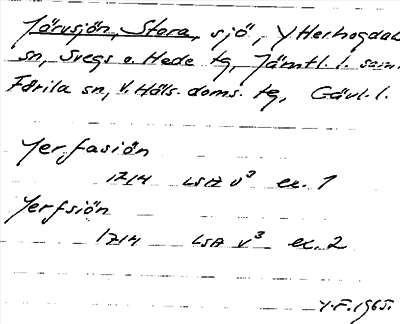 Järvsjön, Stora, sjö, Ytterhogdal
sn, Svegs o. Hede tg, Jämtl. l. samt
Färila sn, V. Häls. doms. tg, Gävl. l.
Jerfasiön
1714 LSA v³ ex. 1
Jerfsiön
1714 LSA v³ ex. 2
1965.